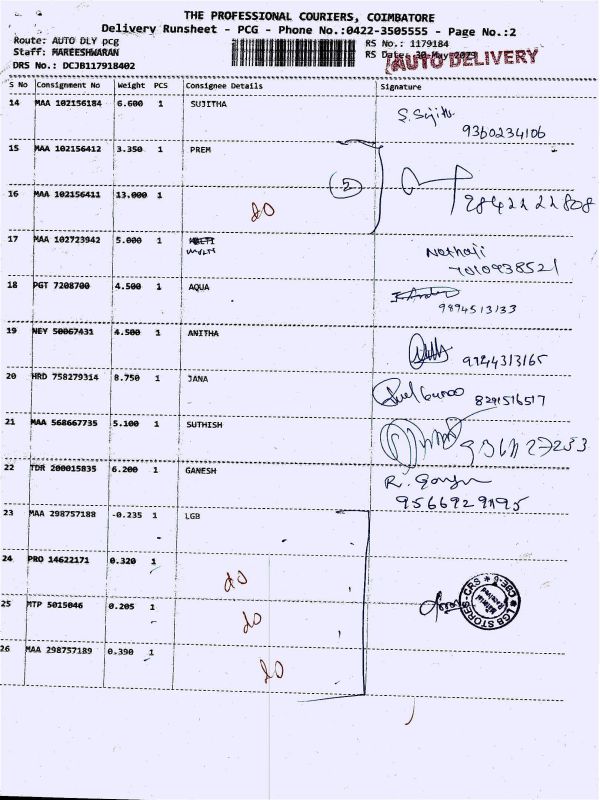 THE PROFESSIONAL COURIERS, COIMBATORE
Delivery Runsheet - PCG - Phone No.:0422-3505555 - Page No.:2
Route: AUTO DLY pcg
RS No.: 1179184
Staff: MAREESHWARAN
RS Date: 30-May-2023
AUTO DELIVERY
DRS No.: DCJB117918402
S No Consignment No Weight PCS Consignee Details Signature
14 MAA 102156184 6.600 1 SUJITHA
S. Sujith
9360234106
15 MAA 102156412 3.350 1 PREM
2
16 MAA 102156411 13.000 1
do
9842121808
17 MAA 102723942 5.000 1
MULTI
Nathaji
7010938521
18 PGT 7208700 4.500 1 AQUA
9894513133
19 NEY 50067431 4.500 1 ANITHA
9944313165
20 HRD 758279314 8.750 1 JANA
8291516517
21 MAA 568667735 5.100 1 SUTHISH
22 TDR 200015835 6.200 1 GANESH
R. Ganesh
9566929195
23 MAA 298757188 -0.235 1 LGB
24 PRO 14622171 0.320 1
do
25 MTP 5015046 0.205 1
do
LGB STORES-CRS
Material Received
26 MAA 298757189 0.390 1
do